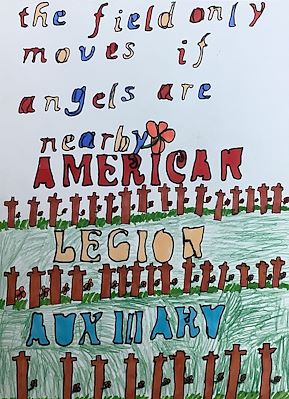 the field only
moves if
angels are
nearby
AMERICAN
LEGION
AUXILIARY